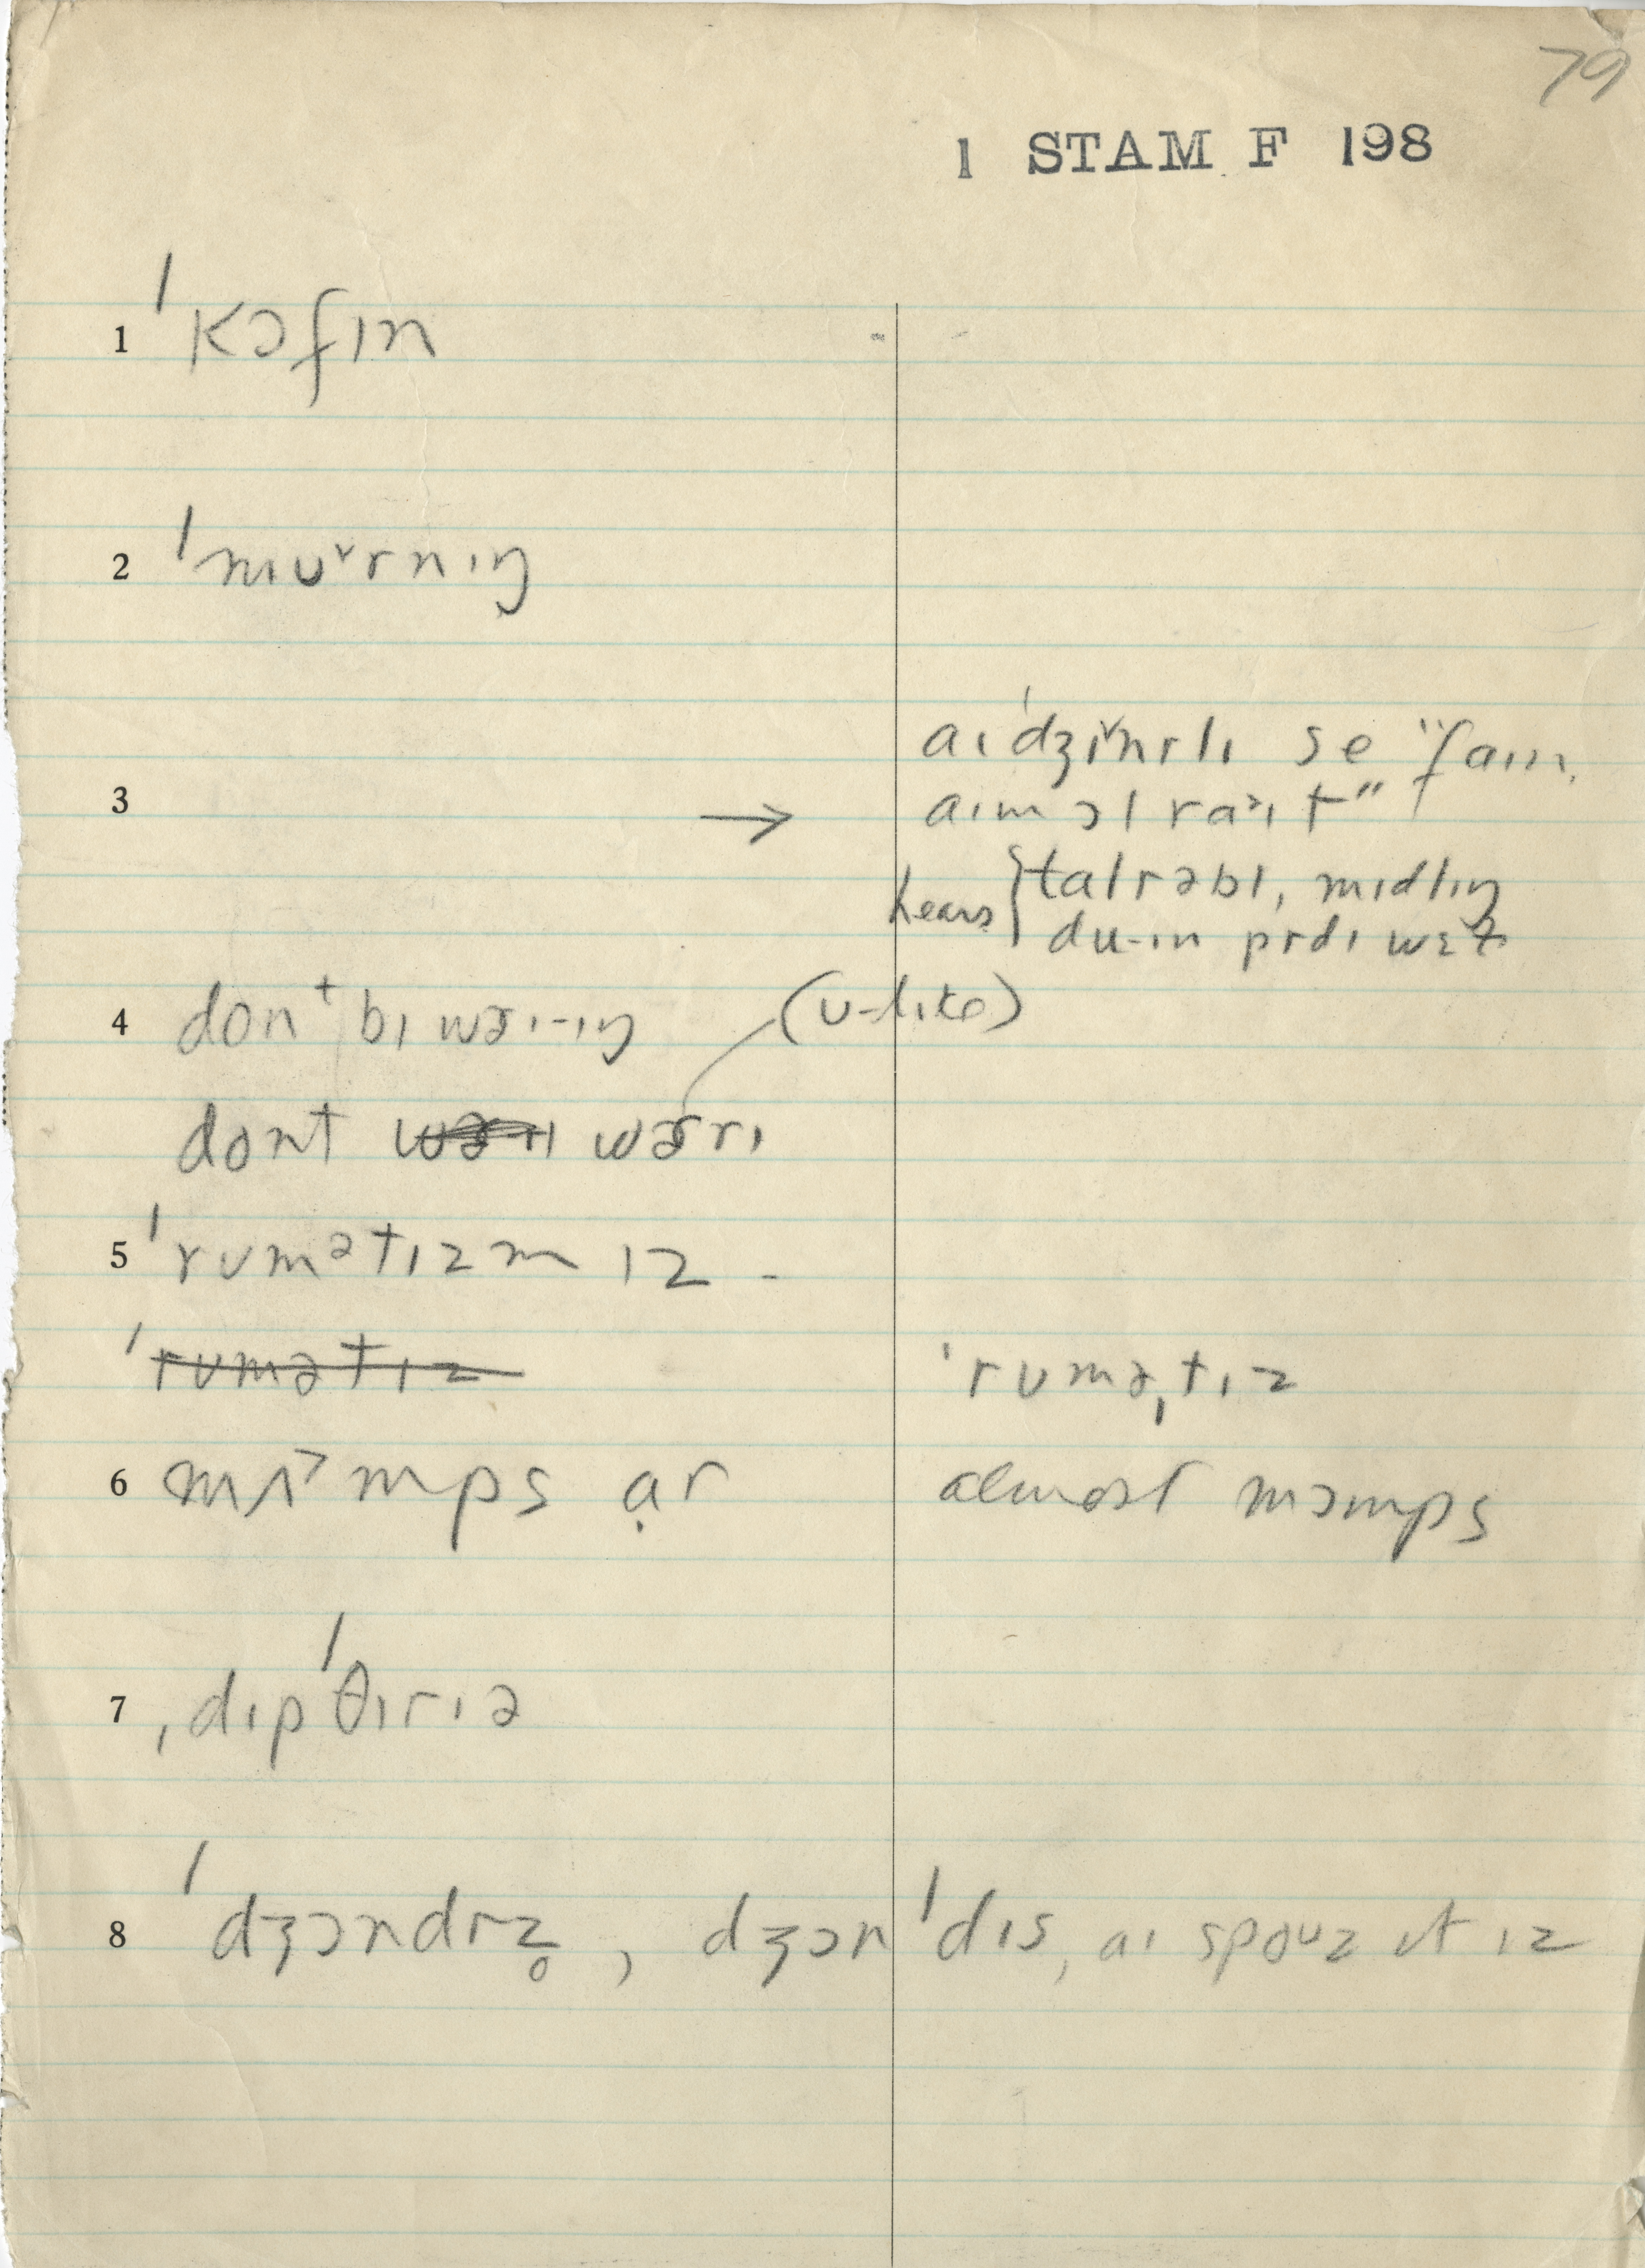 79
1 STAM F 198
1 ˈkɔfɪn
2 ˈmʊ˅rnɪŋ
aɪ ˈdʒɪ˅nrlɪ se "faɪn.
3 → aɪm ɔl ra˃ɪt"
hears { talrəbl, mɪdlɪŋ
du-ɪn prdɪ wɛl
4 dont bɪ wɚɪ-ɪŋ (ʊ-like)
dont wɚrɪ
5 ˈrumətɪzm ɪz -
ˈrumətɪz ˈruməˌtɪz
6 mʌ˃mps ạr almost mɔmps
7 ˌdɪpˈθɪrɪə
8 ˈdʒɔndrz̥, dʒɔnˈdɪs, aɪ spouz ɪt ɪz